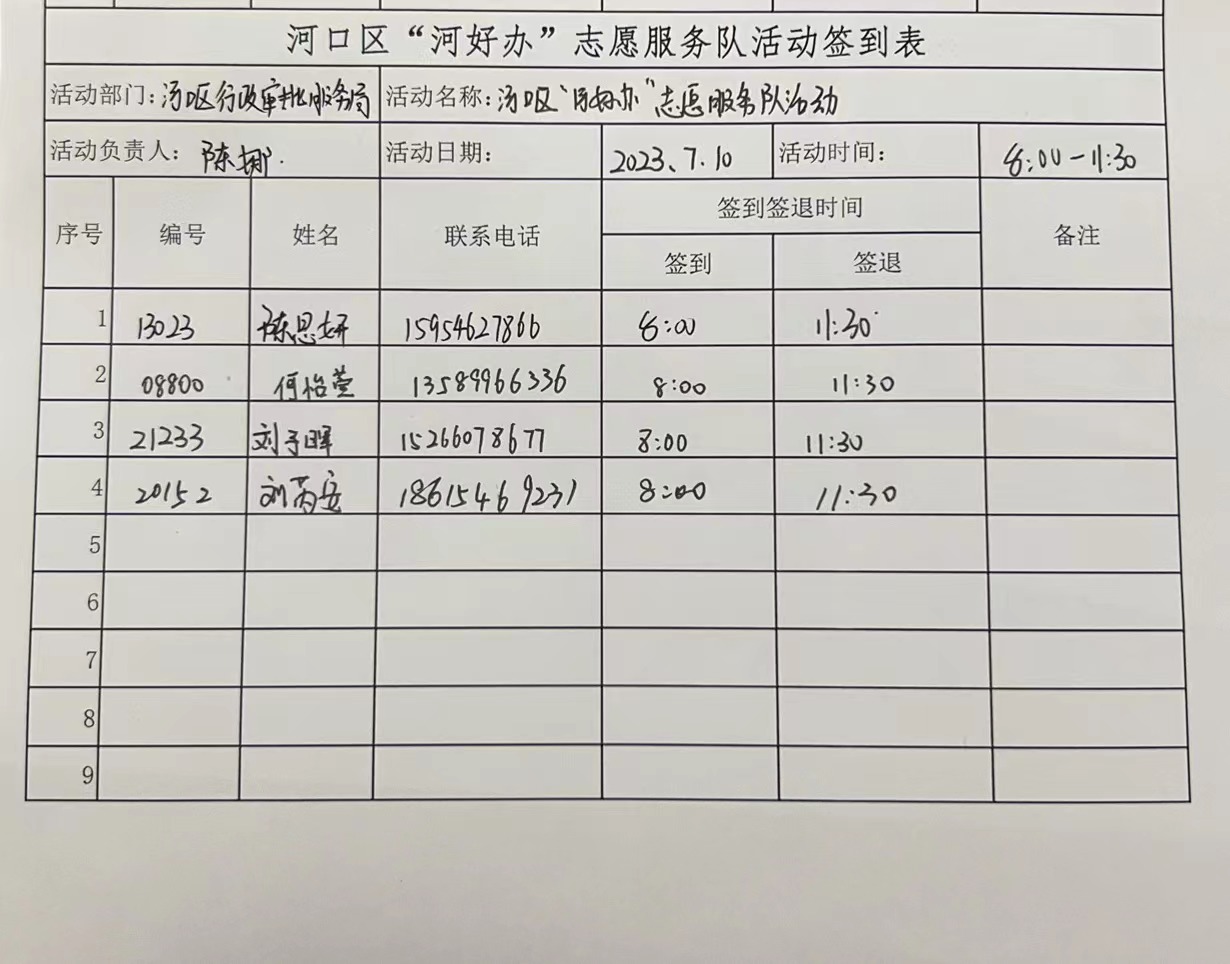 河口区“河好办”志愿服务队活动签到表
活动部门：河口区行政审批服务局 活动名称：河口区“河好办”志愿服务队活动
活动负责人：陈娜. 活动日期： 2023、7.10 活动时间： 8:00-11:30
序号 编号 姓名 联系电话 签到签退时间 备注
签到 签退
1 13023 陈思妍 15954627866 8:00 11:30
2 08800 何怡萱 13589966336 8:00 11:30
3 21233 刘子晖 15266078677 8:00 11:30
4 20152 刘芮安 18615469231 8:00 11:30
5
6
7
8
9